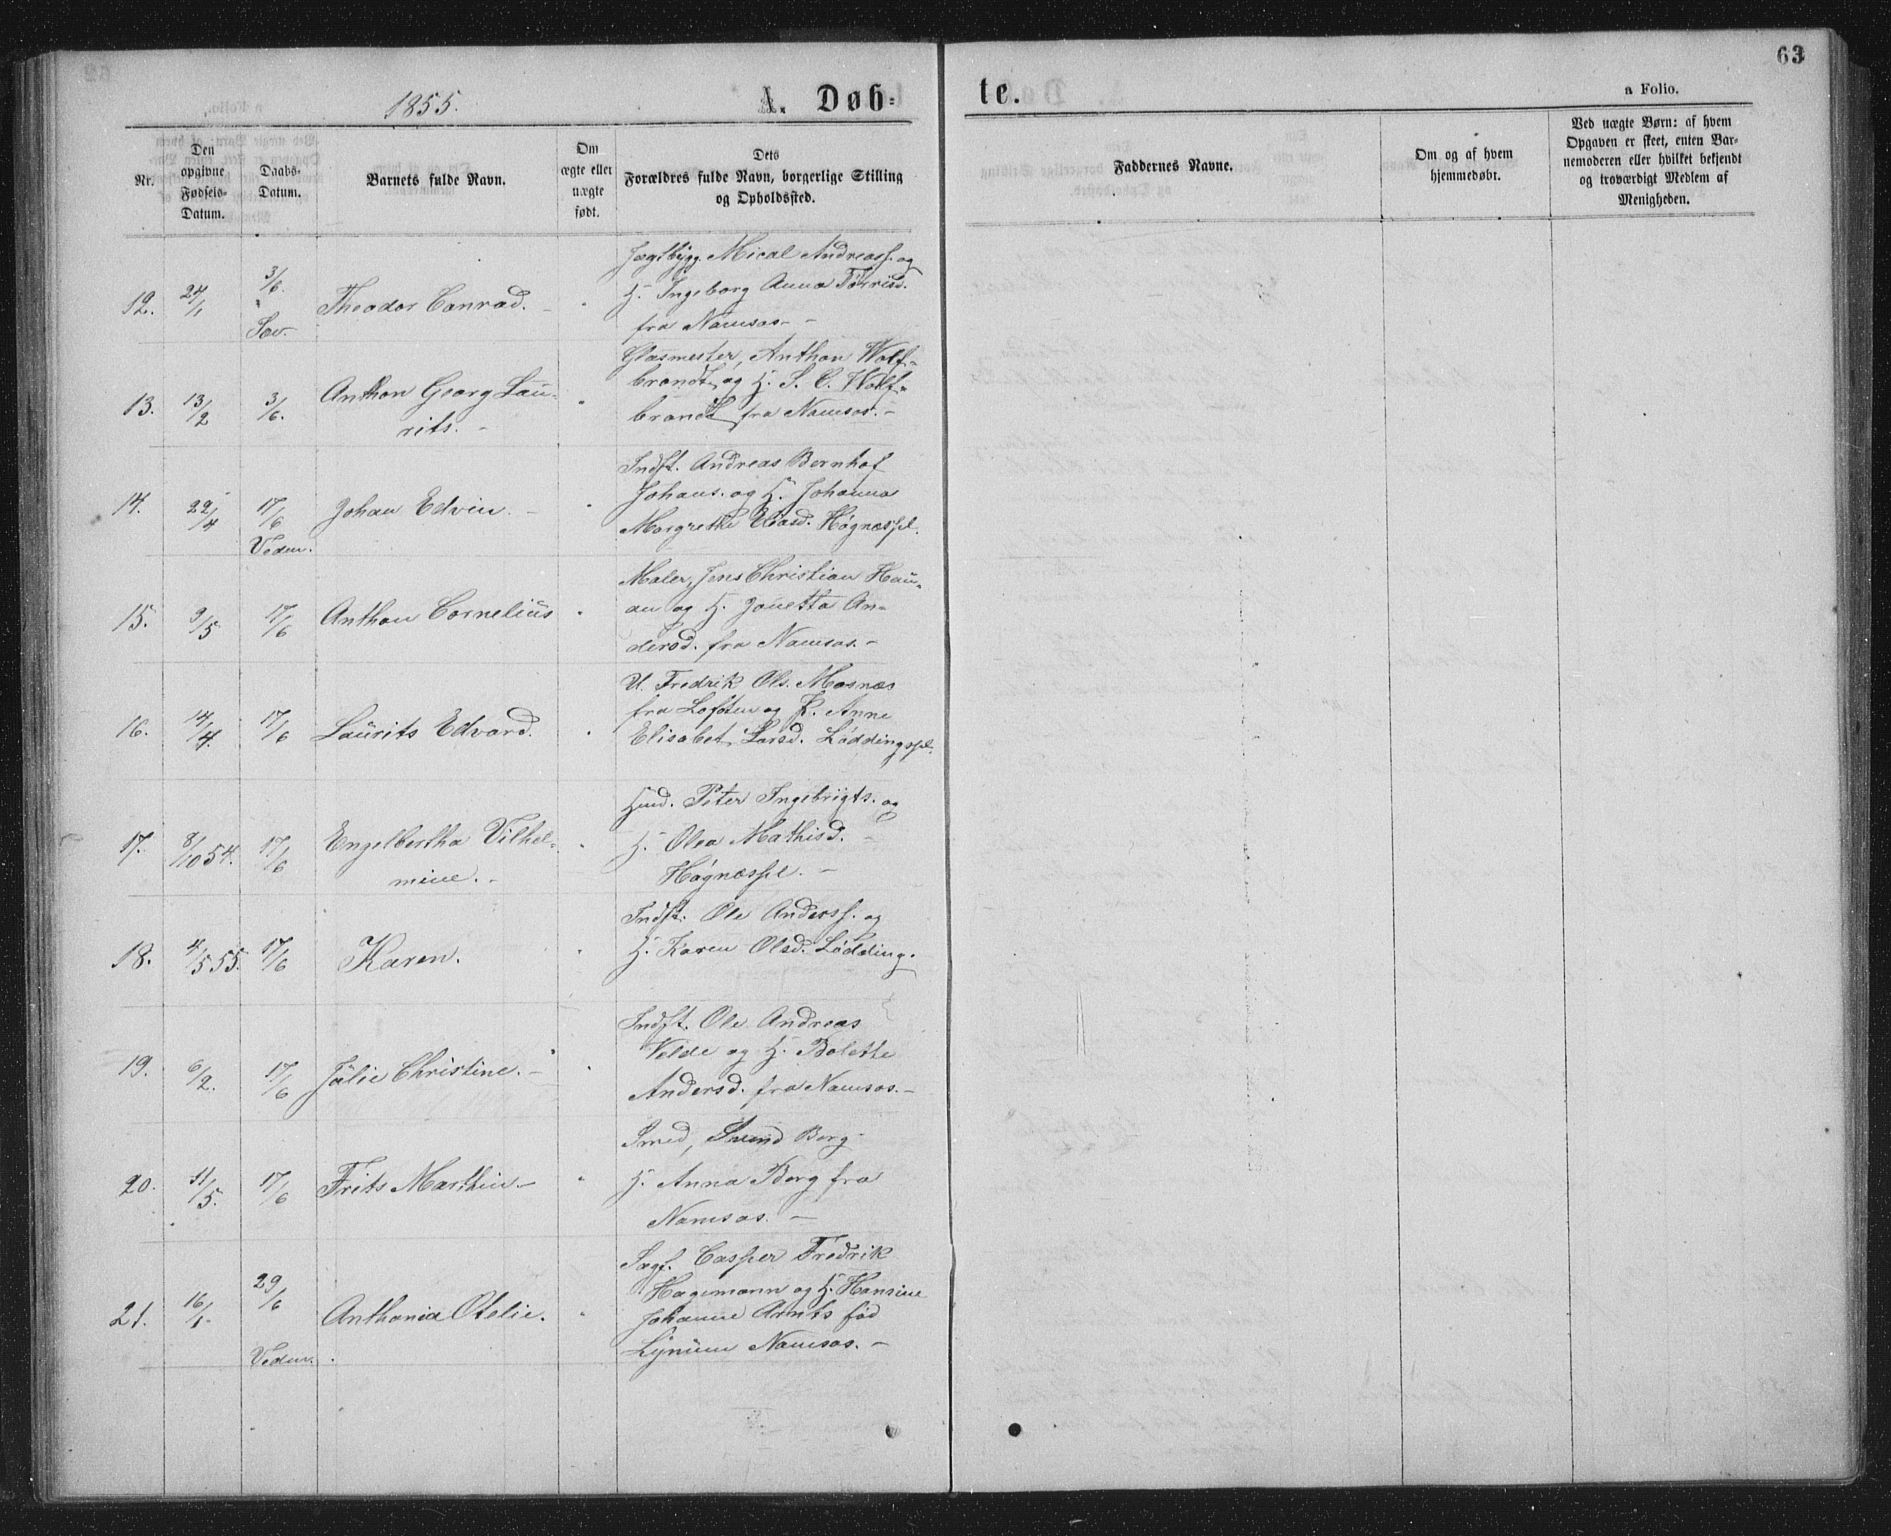 63
1855.
A. Døb-
te.
a Folio.
Nr.
Den
opgivne
Fødsels-
Datum.
Daabs-
Datum.
Barnets fulde Navn.
Om
ægte eller
uægte
født.
Dets
Forældres fulde Navn, borgerlige Stilling
og Opholdssted.
Faddernes Navne.
Om og af hvem
hjemmedøbt.
Ved uægte Børn: af hvem
Opgaven er skeet, enten Bar-
nemoderen eller hvilket bekjendt
og troværdigt Medlem af
Menigheden.
12. 24/1 3/6 Sav. Theodor Conrad. -
Jægtbygg. Mical Andreass. og
H. Ingeborg Anna Tørrisd.
fra Namsos. -
13. 13/2 3/6. Anthon Georg Lau-
rits. -
Glasmester, Anthon Wolf-
brandt, og H. S. C. Wolf-
brandt fra Namsos. -
14. 22/4 17/6 Vedm. Johan Edvin. -
Indst. Andreas Bernhof
Johans. og H. Johanna
Margrethe Eliasd. Høgnæspl.
15. 9/5 17/6 Anthon Cornelius
Maler, Jens Christian Hau-
an og H. Jonetta An-
dersd. fra Namsos. -
16. 14/4. 17/6 Laurits Edvard.
U. Fredrik Ols. Mosnæs
fra Lofoten og P. Anne
Elisabet Larsd. Løddingspl.
17. 8/10 54. 17/6 Engelbertha Vilhel-
mine. -
Hmd. Peter Ingebrigts. og
H. Olea Mathisd. -
Høgnæspl. -
18. 4/5 55. 17/6 Karen.
Indst. Ole Anderss. og
H. Karen Olsd. Lødding.
19. 6/2. 17/6 Julie Christine. -
Indst. Ole Andreas
Velde og H. Bolette
Andersd. fra Namsos. -
20. 11/5. 17/6 Frits Marthin -
Smed, Svend Berg
H. Anna Berg fra
Namsos. -
21. 16/1 29/6 Vedm. Anthonia Otelie.
Sagf. Casper Fredrik
Hagemann og H. Hansine
Johanne Arnts fød
Lynum Namsos. -